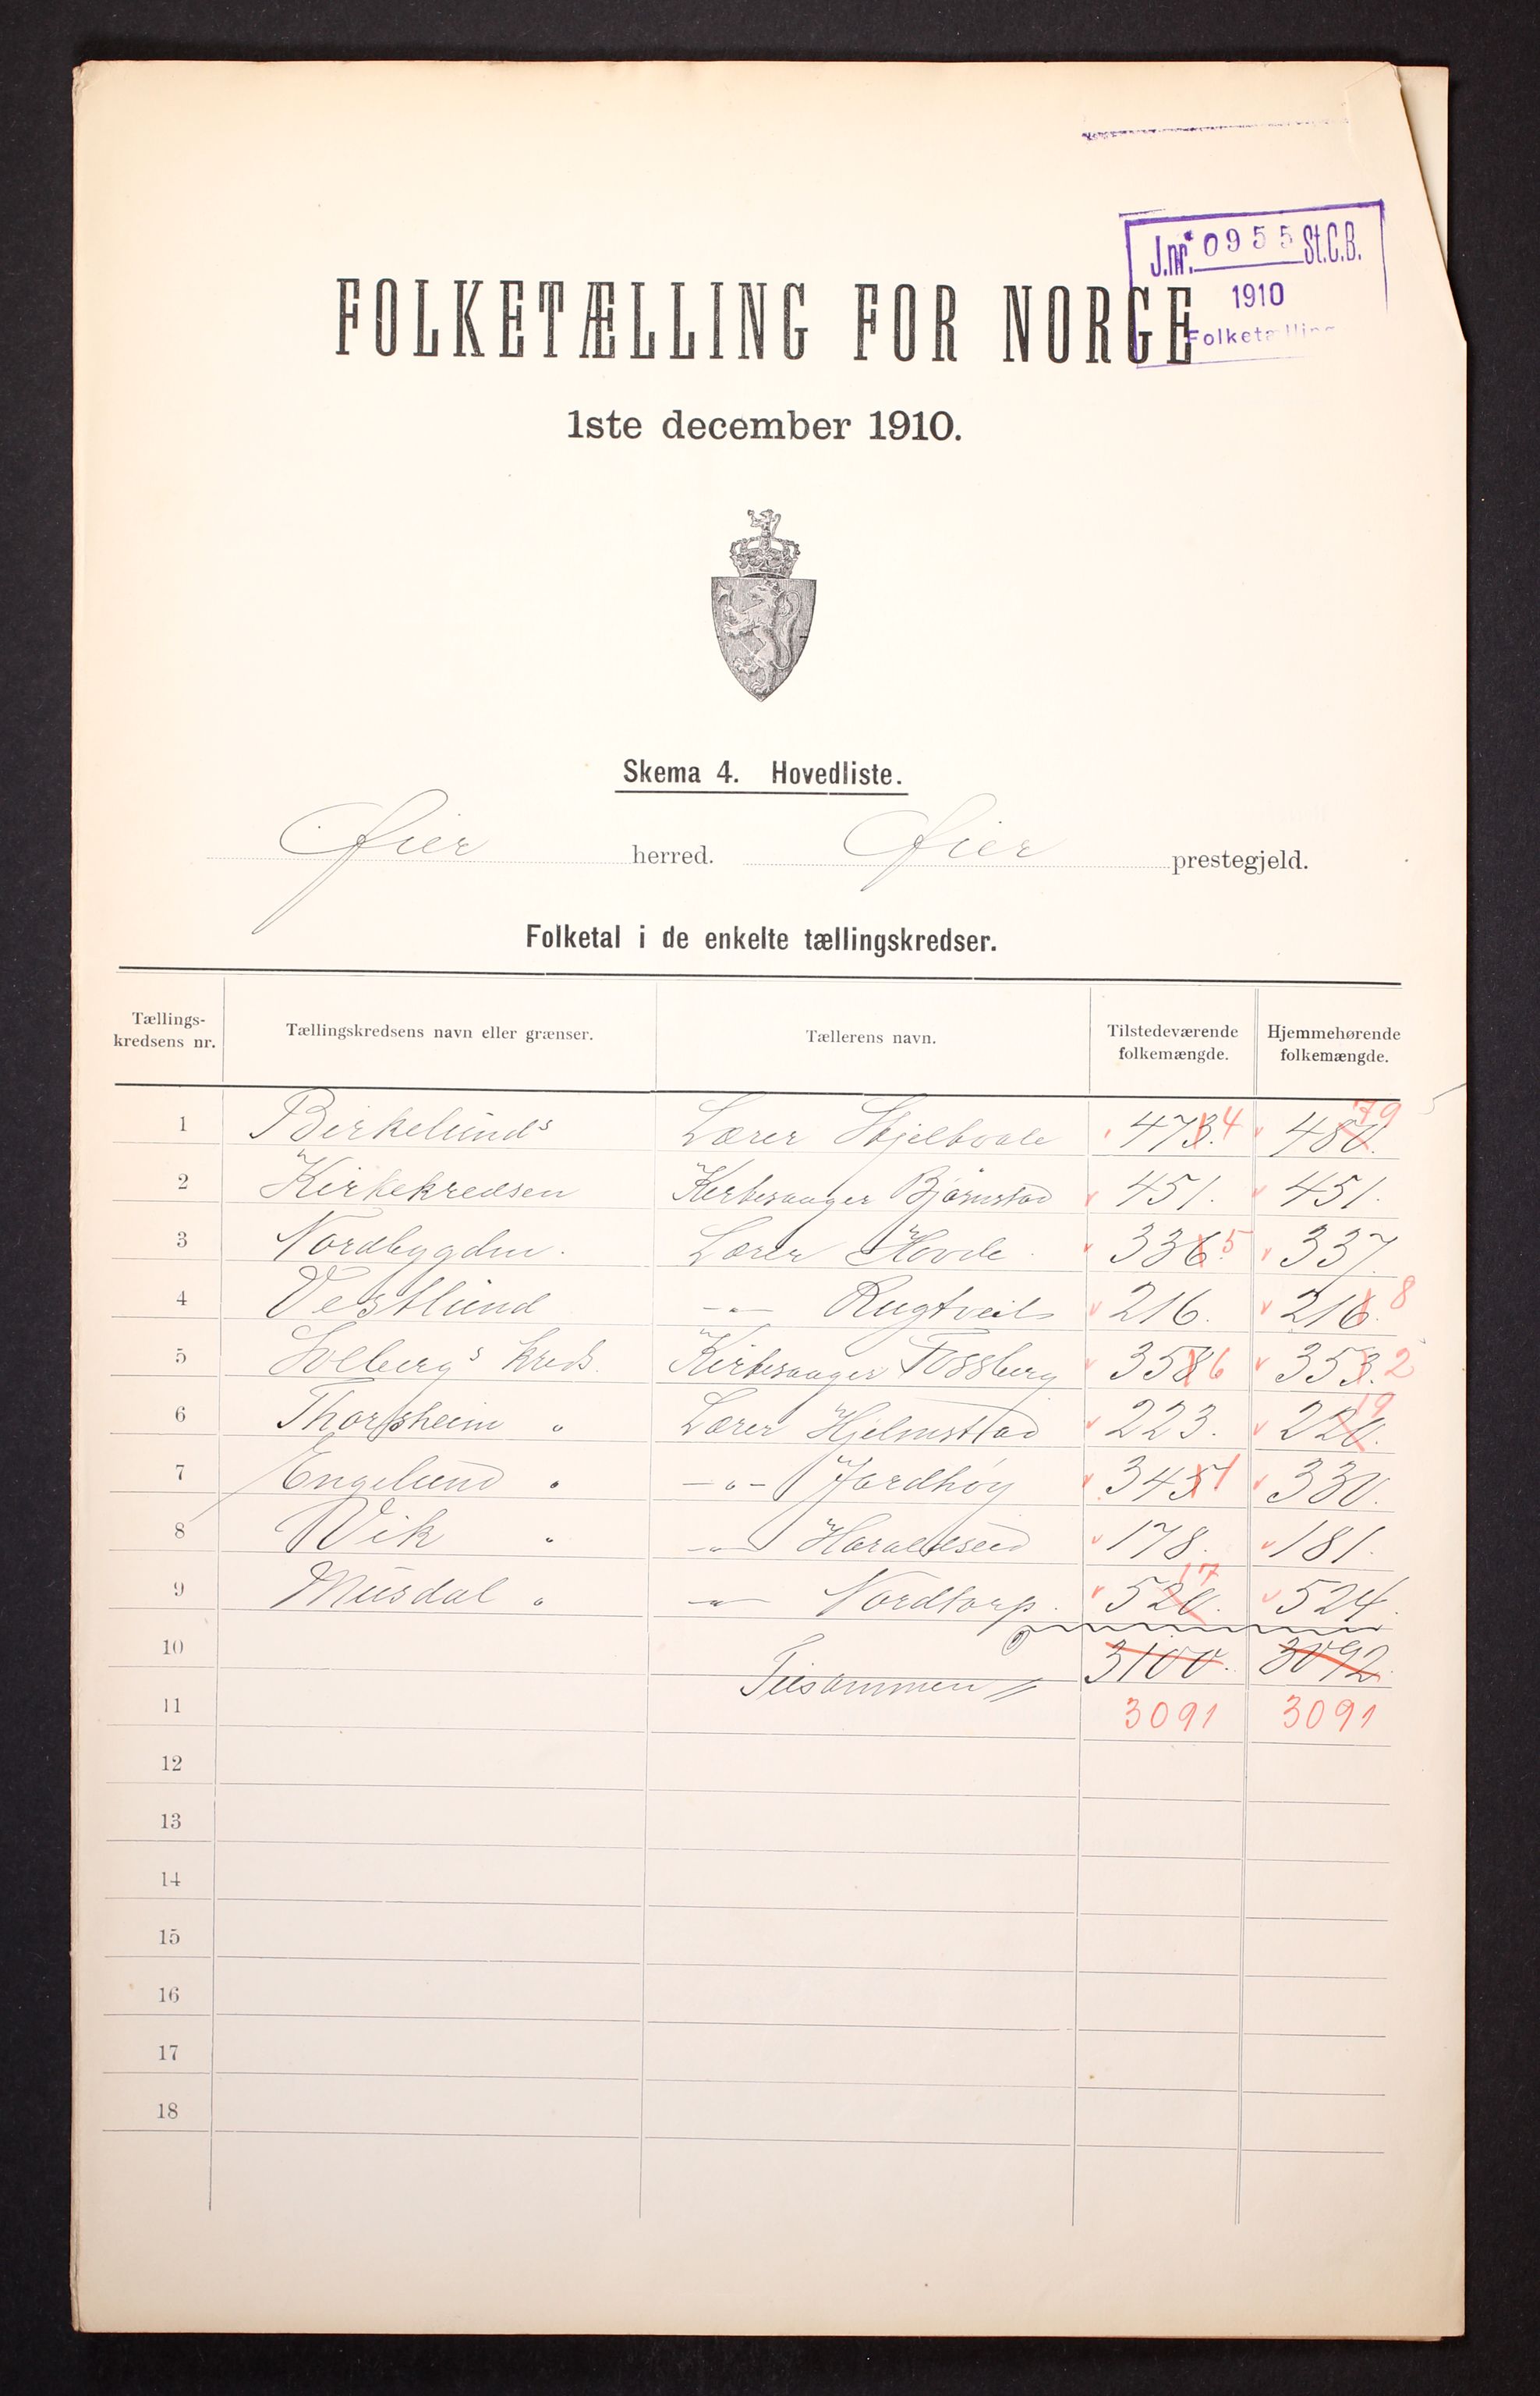 J.nr. 0955 St.C.B.
1910
Folketælling
FOLKETÆLLING FOR NORGE
1ste december 1910.
Skema 4. Hovedliste.
Øier herred. Øier prestegjeld.
Folketal i de enkelte tællingskredser.
Tællings-kredsens nr. Tællingskredsens navn eller grænser. Tællerens navn. Tilstedeværende folkemængde. Hjemmehørende folkemængde.
1 Birkelunds Lærer 473. 4 480. 79
2 Kirkekredsen Kirkesanger Bjørnstad 451. 451.
3 Nordbygden. Lærer Hovde 336. 5 337.
4 Vestlund -"- 216. 216. 8
5 Solbergs kreds. Kirkesanger Fossberg 358 6 353. 2
6 Thorsheim " Lærer Hjelmstad 223. 220. 19
7 Engelund " -"- Jordhøy 345 1 330.
8 Vik " -"- Haraldseid 178. 181.
9 Musdal " -"- Nordtorp. 520. 17 524.
10 Tilsammen 3100. 3092.
11 3091 3091
12
13
14
15
16
17
18